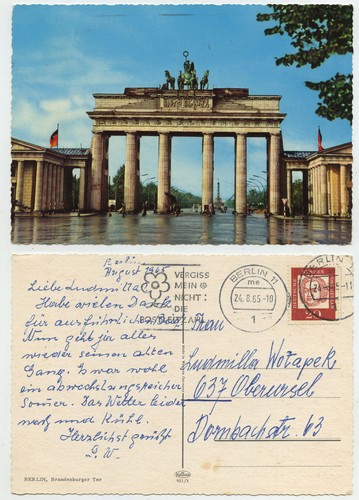 Berlin,
August 1965
Liebe Ludmilla
Habe vielen Dank
für ausführlichen
Nun geht ja alles
wieder seinen alten
Gang. Es war wohl
ein abwechslungsreicher
Sommer. Das Wetter leider
naß und kühl.
Herzlichst grüßt
L. W.
BERLIN, Brandenburger Tor
VERGISS
MEIN
NICHT:
DIE
POSTLEITZAHL
BERLIN 11
me
24.8.65-10
1
BERLIN
DEUTSCHE
20
Frau
Ludmilla Wotapek
637 Oberursel
Dornbachstr. 63